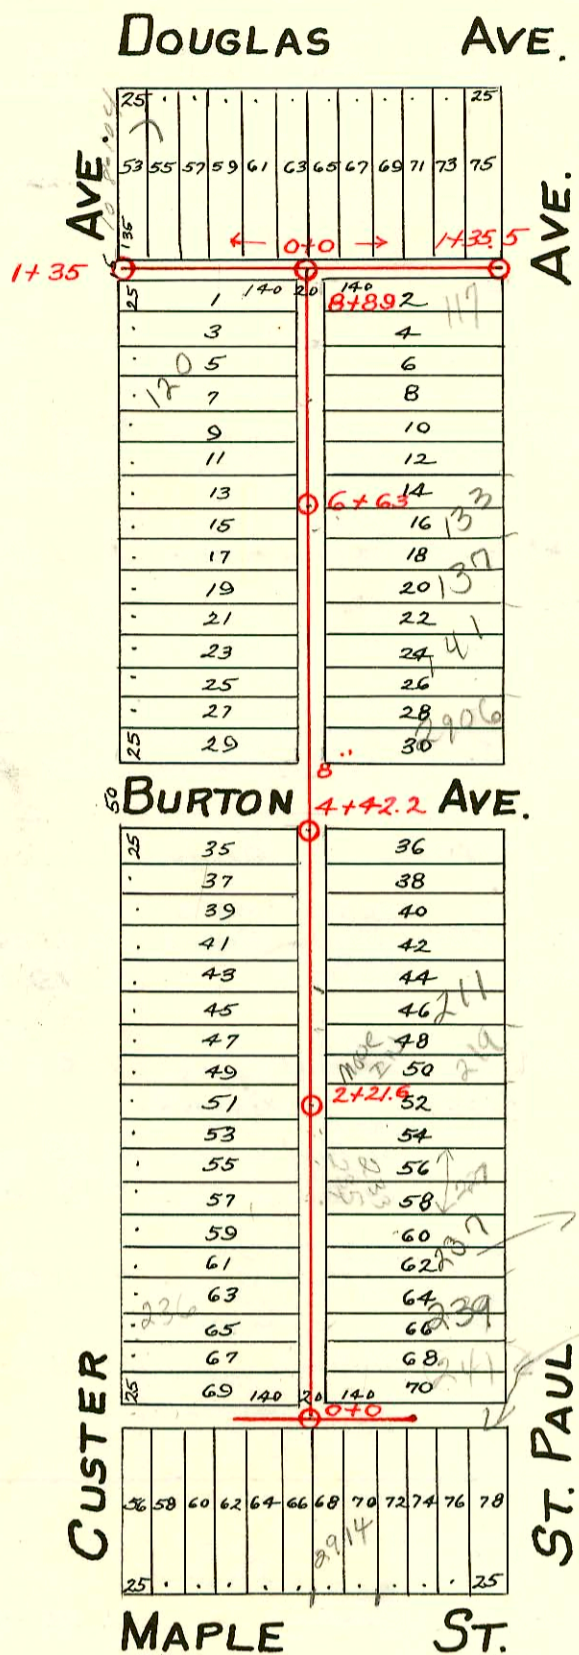 DOUGLAS AVE.
25 25
53 55 57 59 61 63 65 67 69 71 73 75
AVE.
AVE.
135
15
← 0+0 → 1+35.5
1+35
25 1 140 20 140 2
8+89 117
3 4
5 6
120
7 8
9 10
11 12
13 14
6+63
15 16 133
17 18
19 20 137
21 22
23 24 141
25 26
27 28
2906
25 29 30
8"
50 BURTON AVE.
4+42.2
25 35 36
37 38
39 40
41 42
43 44
45 46 211
47 48
219
49 50
MOVE
51 2+21.6 52
53 54
55 56
227
57 58
59 60
237
61 62
63 64
236 239
65 66
67 68
241
25 69 140 20 140 70
0+0
CUSTER
ST. PAUL
56 58 60 62 64 66 68 70 72 74 76 78
2914
25 25
MAPLE ST.